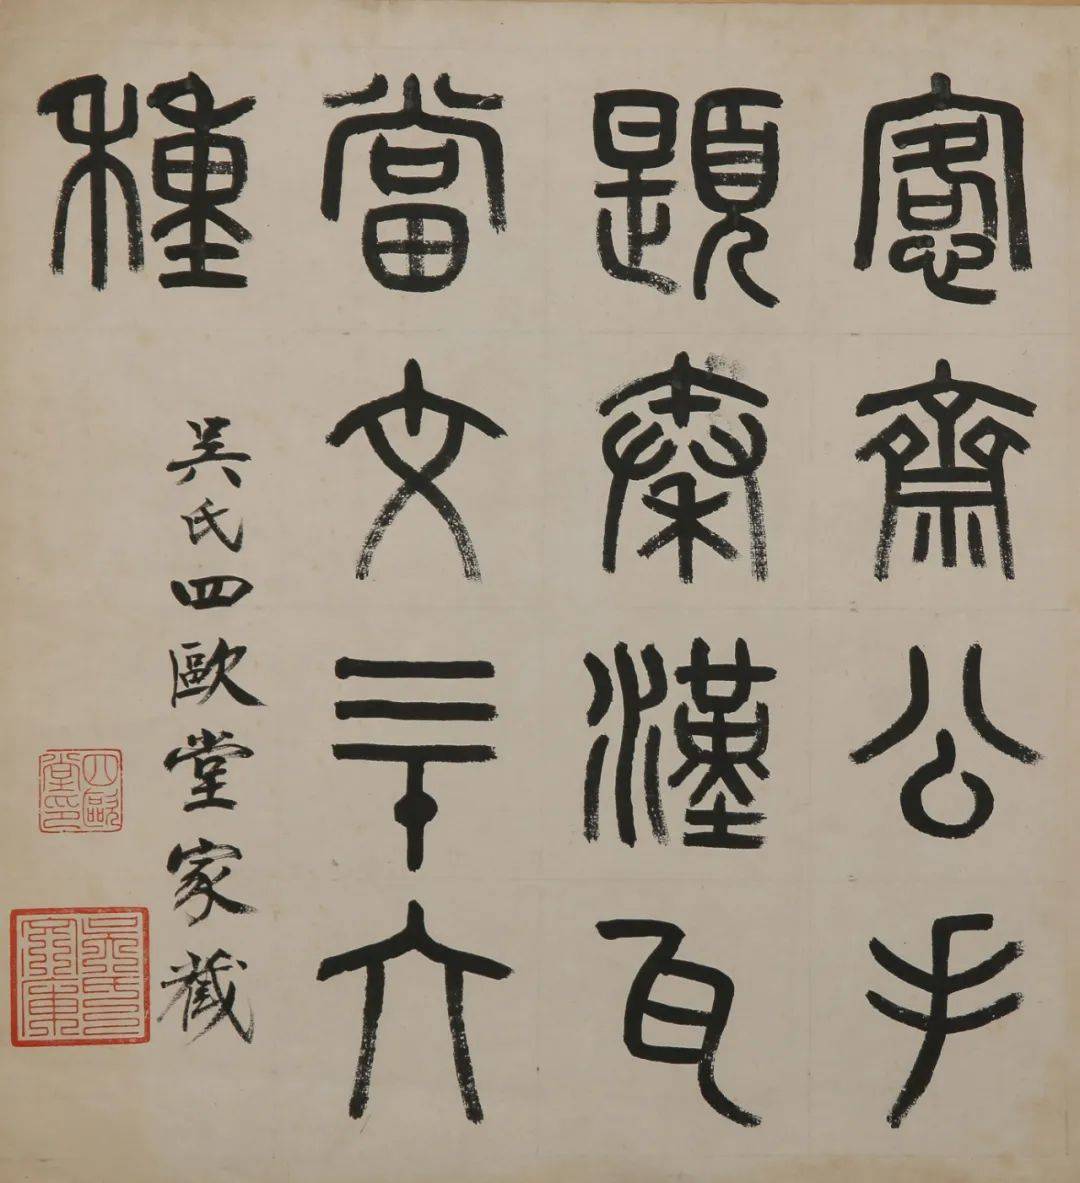 愙齋公手
題秦漢瓦
當文三十六
種
吳氏四歐堂家藏
四歐堂印